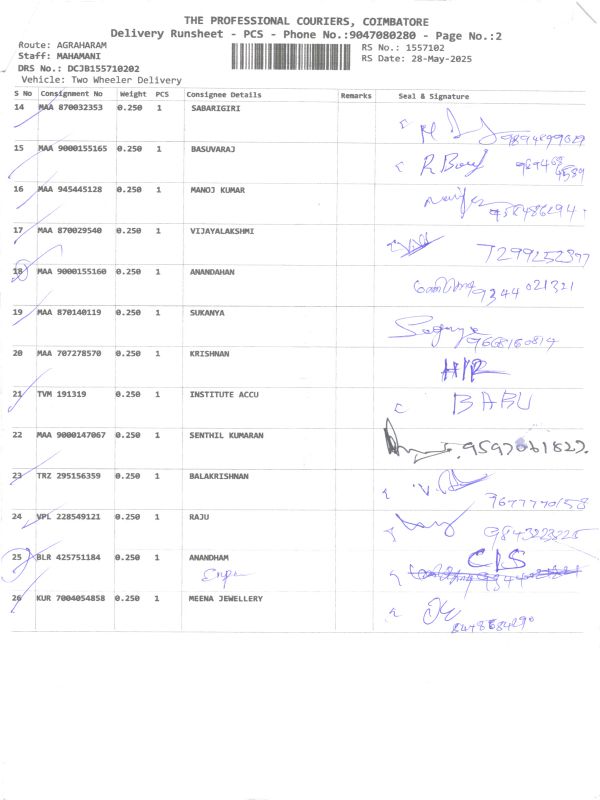 THE PROFESSIONAL COURIERS, COIMBATORE
Delivery Runsheet - PCS - Phone No.:9047080280 - Page No.:2
Route: AGRAHARAM
Staff: MAHAMANI
DRS No.: DCJB155710202
Vehicle: Two Wheeler Delivery
RS No.: 1557102
RS Date: 28-May-2025
S No Consignment No Weight PCS Consignee Details Remarks Seal & Signature
14 MAA 870032353 0.250 1 SABARIGIRI
15 MAA 9000155165 0.250 1 BASUVARAJ
16 MAA 945445128 0.250 1 MANOJ KUMAR
17 MAA 870029540 0.250 1 VIJAYALAKSHMI
7299252397
18 MAA 9000155160 0.250 1 ANANDAHAN
9344 021321
19 MAA 870140119 0.250 1 SUKANYA
9668160814
20 MAA 707278570 0.250 1 KRISHNAN
H/R
21 TVM 191319 0.250 1 INSTITUTE ACCU
BABU
22 MAA 9000147067 0.250 1 SENTHIL KUMARAN
23 TRZ 295156359 0.250 1 BALAKRISHNAN
9677770158
24 VPL 228549121 0.250 1 RAJU
25 BLR 425751184 0.250 1 ANANDHAM
26 KUR 7004054858 0.250 1 MEENA JEWELLERY